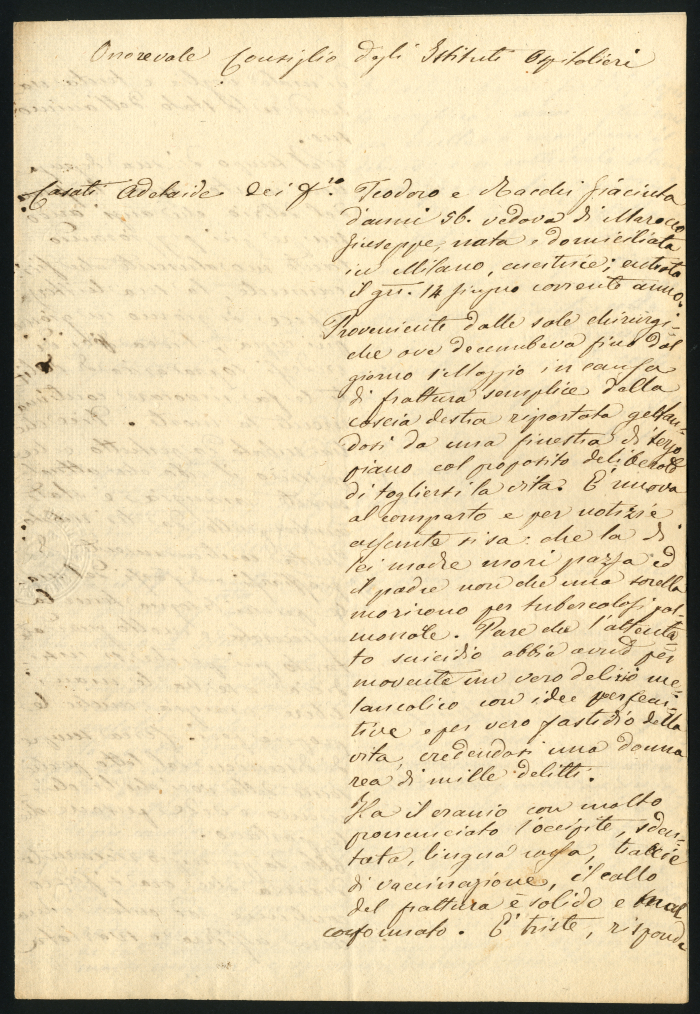 Onorevole Consiglio degli Istituti Ospitalieri
Casati Adelaide dei fu.i Teodoro e Macchi Giacinta
d'anni 56. vedova di Marocco
Giuseppe, nata e domiciliata
in Milano, cucitrice; entrata
il gn. 14 giugno corrente anno.
Proveniente dalle sale chirurgi-
che ove decumbeva fino dal
giorno 1 Maggio in causa
di frattura semplice della
coscia destra riportata gettan-
dosi da una finestra di terzo
piano col proposito deliberato
di togliersi la vita. E' nuova
al comparto e per notizie
assunte si sa: che la di
lei madre morì pazza ed
il padre non che una sorella
morirono per tubercolosi pol-
monale. Pare che l'attenta-
to suicidio abbia avuto per
movente un vero delirio me-
lancolico con idee persecu-
tive e per vero fastidio della
vita, credendosi una donna
rea di mille delitti.
Ha il cranio con molto
pronunciato l'occipite, sden-
tata, lingua rossa, traccie
di vaccinazione, il callo
del frattura è solido e mal
conformato. E' triste, risponde